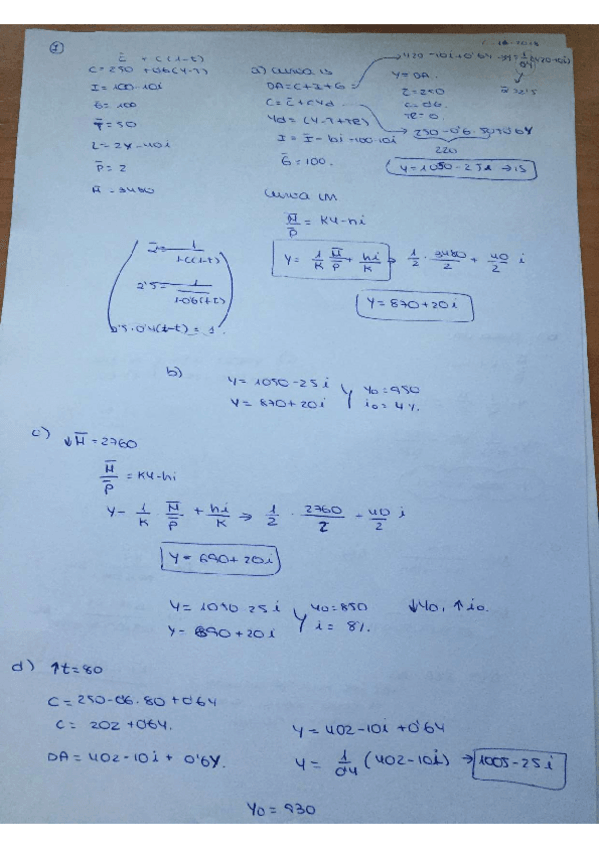 1
C = 250 + 0'6(Y-T)
I = 100-10i
G̅ = 100
T̅ = 50
L = 2Y-40i
P̅ = 2
M = 3480
a) Curva IS
DA = C+I+G =
420-10i+0'6Y
C = C̅+cYd
Yd = (Y-T+TR)
I = I̅-bi = 100-10i
G̅ = 100.
Y = DA.
C̅ = 250
c = 0'6.
TR = 0.
250-0'6.50+0'6Y
220
Y = 1050-25i → IS
Curva LM
M̅/P̅ = KY-hi
Y = 1/K M̅/P̅ + hi/K → 1/2 · 3480/2 + 40/2 i
Y = 870+20i
2.5 = 1/1-0.6(1-t)
b)
Y = 1050-25i
Y = 870+20i
Y0 = 950
i0 = 4%.
c) ↓M̅ = 2760
M̅/P̅ = KY-hi
Y = 1/K M̅/P̅ + hi/K → 1/2 · 2760/2 + 40/2 i
Y = 690+20i
Y = 1050-25i
Y = 690+20i
Y0 = 850
i = 8%.
↓Y0, ↑i0.
d) ↑t = 80
C = 250-0'6.80+0'6Y
C = 202+0'6Y.
DA = 402-10i+0'6Y.
Y = 402-10i+0'6Y
Y = 1/0'4 (402-10i) → 1005-25i
Y0 = 930